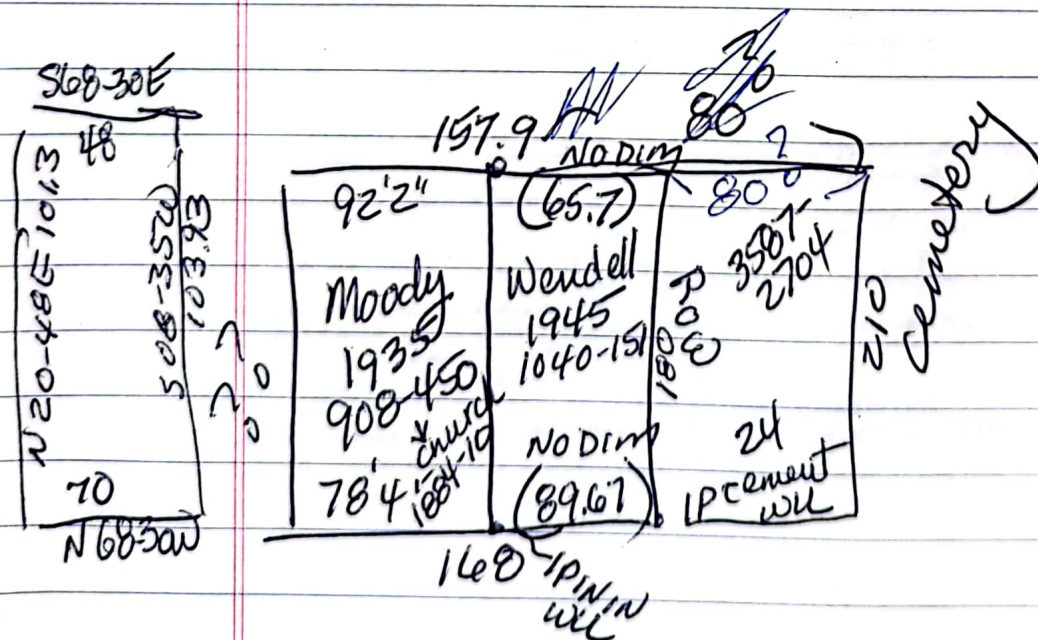 S68-30E
48
N 20-48E-101.3
S 08-35W
103.93
70
N68-30W
157.9
80
NO DIM
?
92'2"
(65.7)
80
Moody
1935
908-450
church
1884-10
78'4"
Wendell
1945
1040-151
NO DIM
(89.67)
Road
180
3587-
2704
24
IP cement
WLL
210
Cemetery
168
IPIN IN
WLL